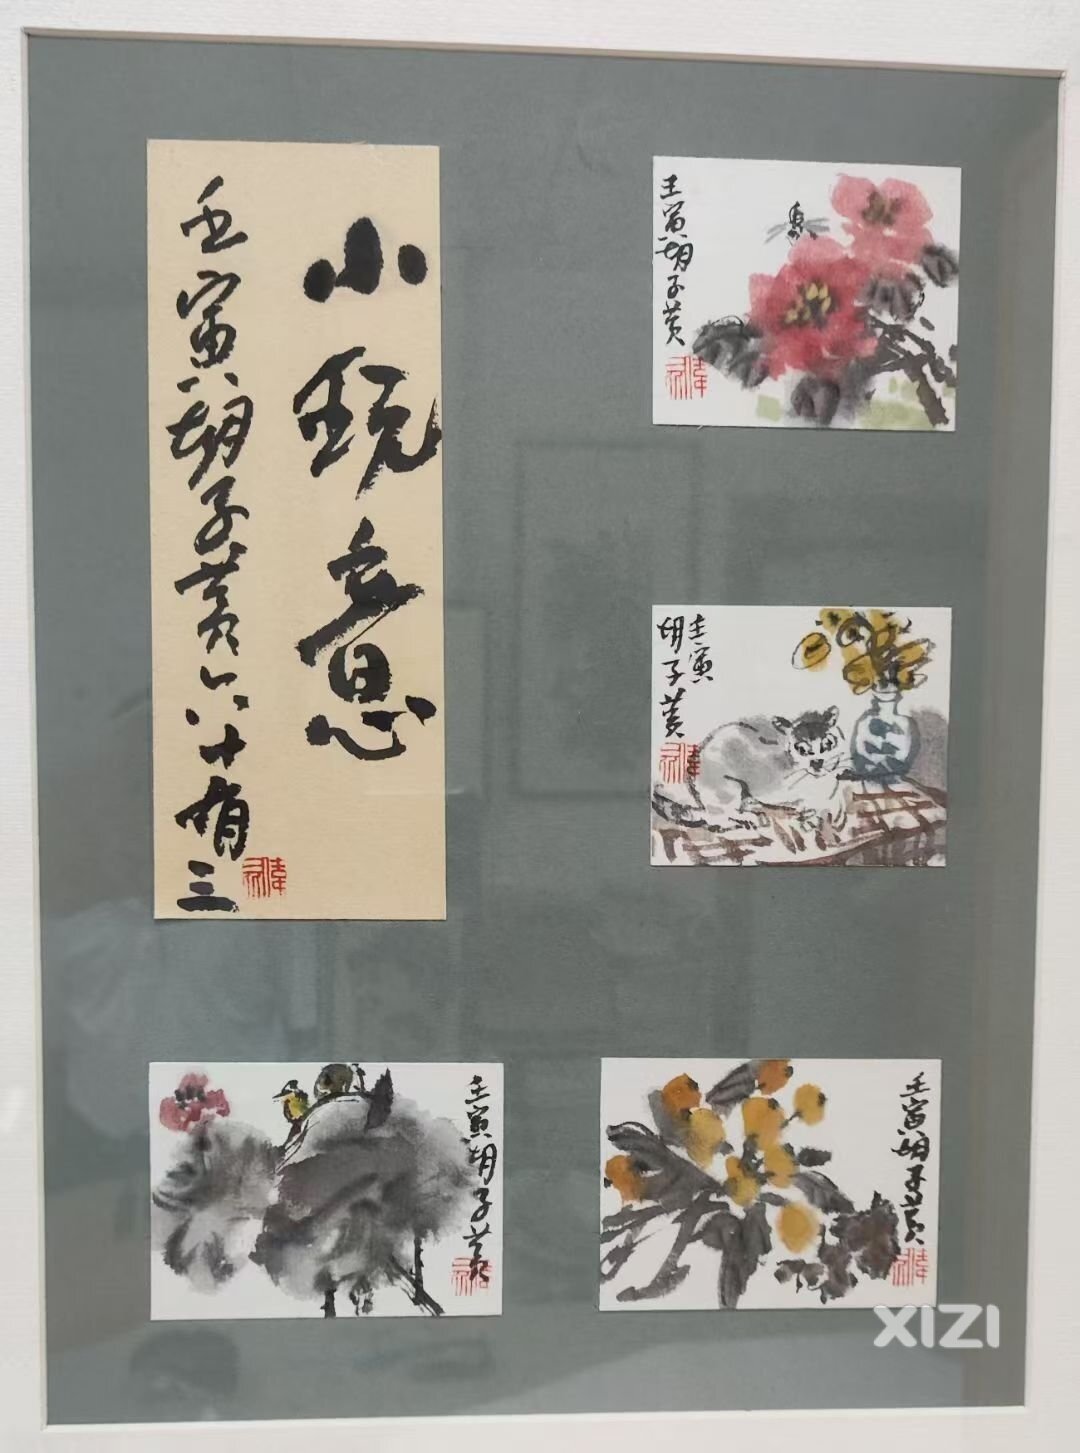 小玩意
壬寅胡子黄六十有三
壬寅胡子黄
壬寅
胡子黄
壬寅胡子黄
壬寅胡子黄
XIZI